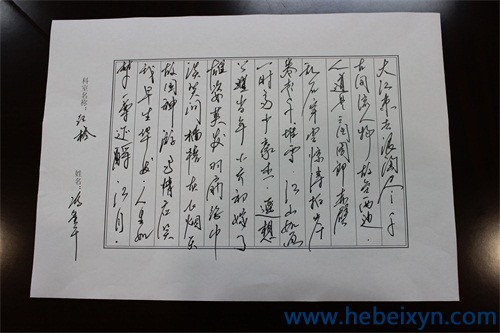 大江东去浪淘尽·千
古风流人物·故垒西边·
人道是三国周郎赤壁
乱石穿空惊涛拍岸
卷起千堆雪·江山如画
一时多少豪杰·遥想
公瑾当年小乔初嫁了
雄姿英发羽扇纶巾
谈笑间樯橹·灰飞烟灭
故国神游多情应笑
我早生华发·人生如
梦一尊还酹江月·
科室名称：
姓名：
www.hebeixyn.com